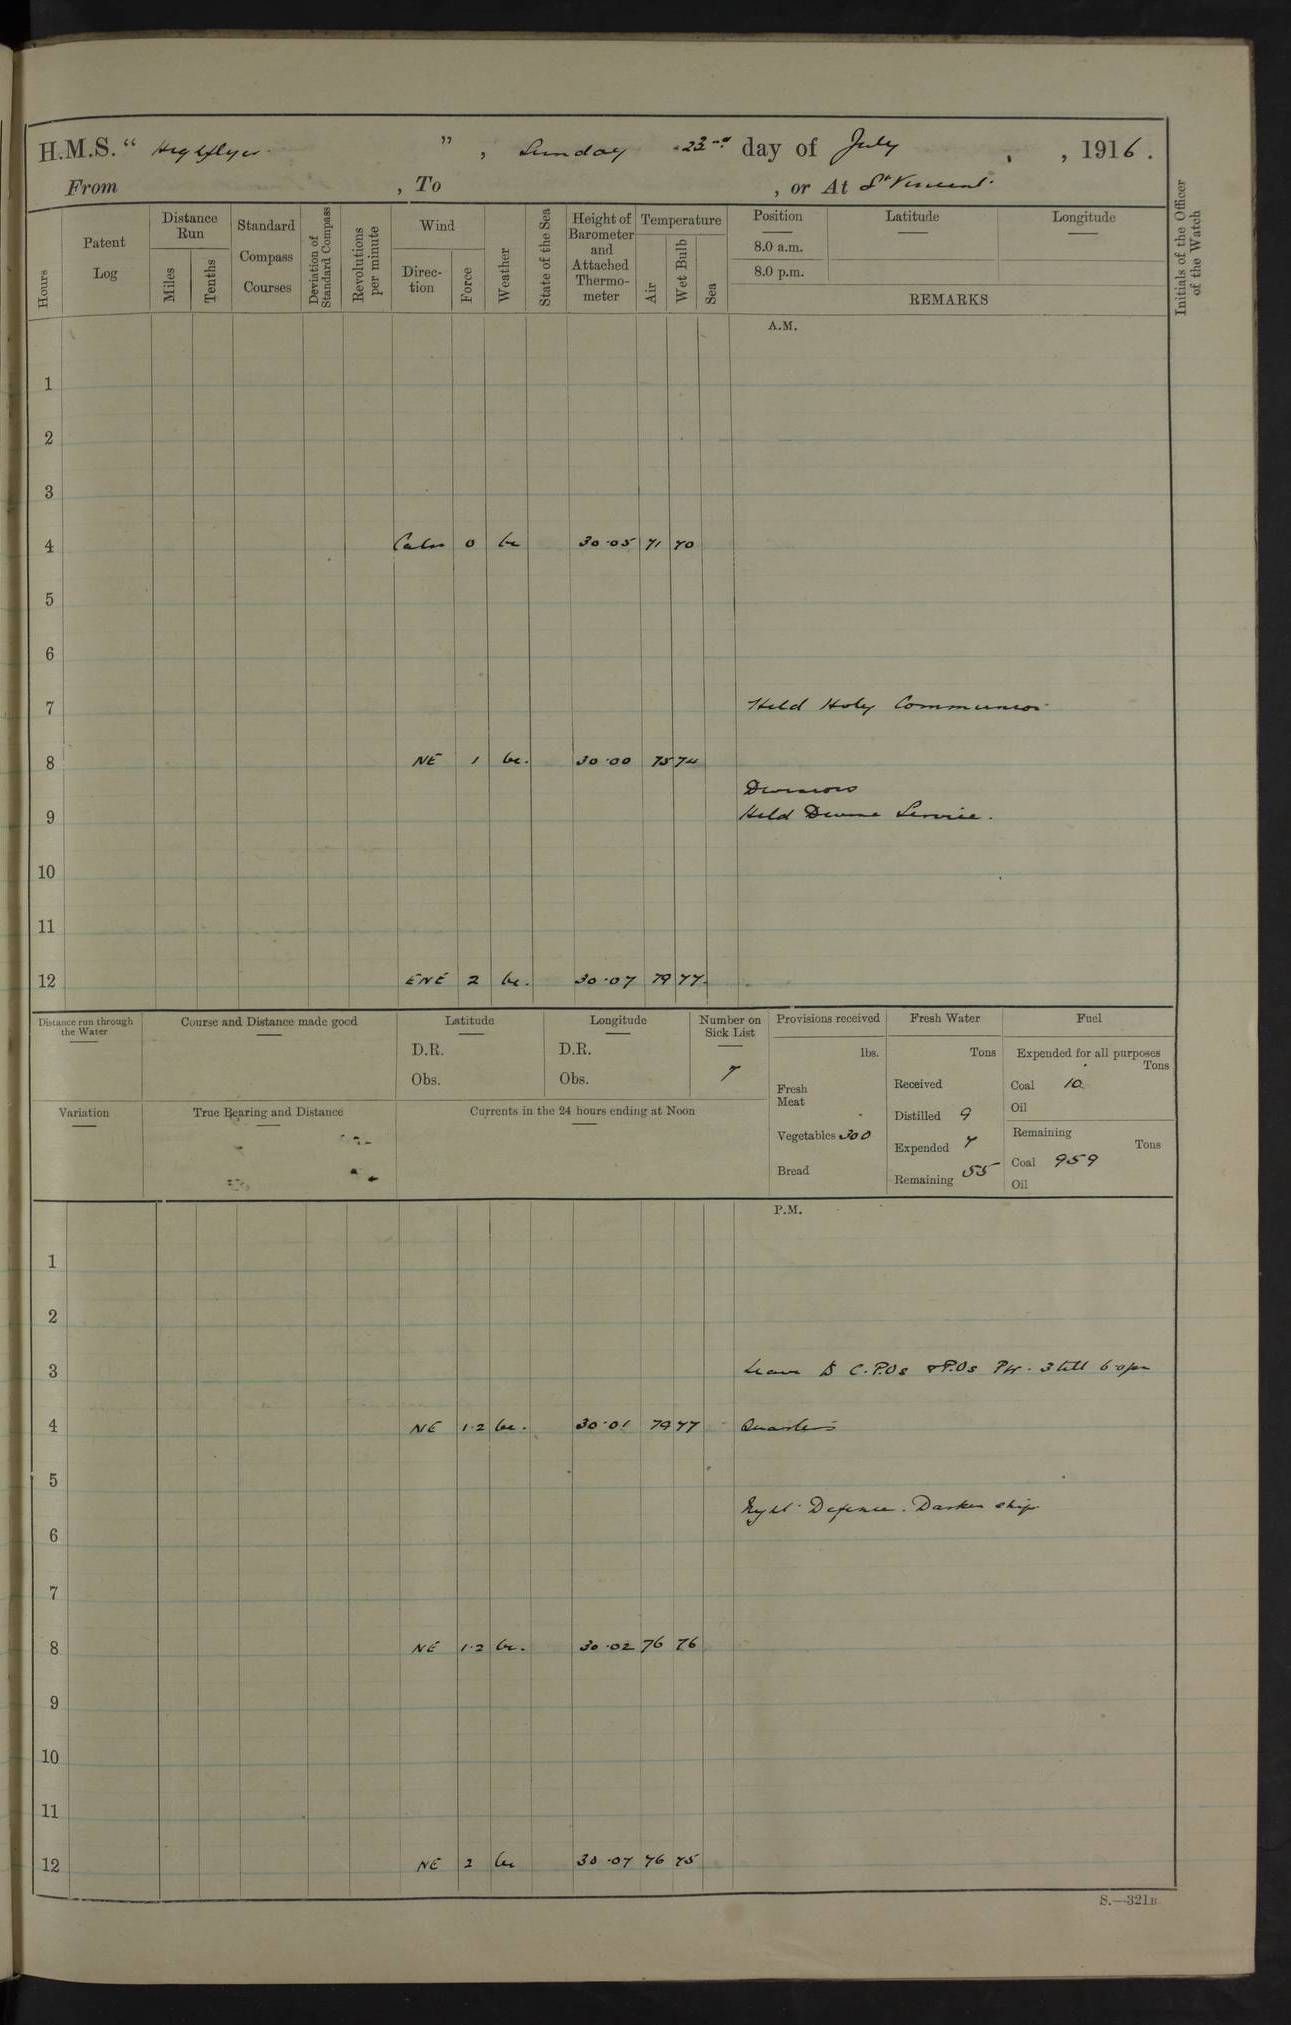 H.M.S. " Highflyer ", Sunday 23rd day of July, , 1916.
From , To , or At St Vincent.
Hours
Patent Log
Distance Run
Miles
Tenths
Standard Compass Courses
Deviation of Standard Compass
Revolutions per minute
Wind
Direction
Force
Weather
State of the Sea
Height of Barometer and Attached Thermometer
Temperature
Air
Wet Bulb
Sea
Position
8.0 a.m.
8.0 p.m.
Latitude
Longitude
REMARKS
Initials of the Officer of the Watch
A.M.
1
2
3
4 Calm 0 bc 30.05 71 70
5
6
7 Held Holy Communion
8 NE 1 bc. 30.00 75 74
Divisions
9 Held Divine Service.
10
11
12 ENE 2 bc. 30.07 79 77
Distance run through the Water
Course and Distance made good
Latitude
D.R.
Obs.
Longitude
D.R.
Obs.
Number on Sick List
7
Provisions received
lbs.
Fresh Meat
Vegetables 300
Bread
Fresh Water
Tons
Received
Distilled 9
Expended 7
Remaining 55
Fuel
Expended for all purposes
Tons
Coal 10
Oil
Remaining
Tons
Coal 959
Oil
Variation
True Bearing and Distance
Currents in the 24 hours ending at Noon
P.M.
1
2
3 Leave to C.P.Os & P.Os PW. 3 till 6.0pm
4 NE 1.2 bc. 30.01 79 77 Quarters
5
Night Defence. Darken ship
6
7
8 NE 1.2 bc. 30.02 76 76
9
10
11
12 NE 2 bc 30.07 76 75
S.—321B